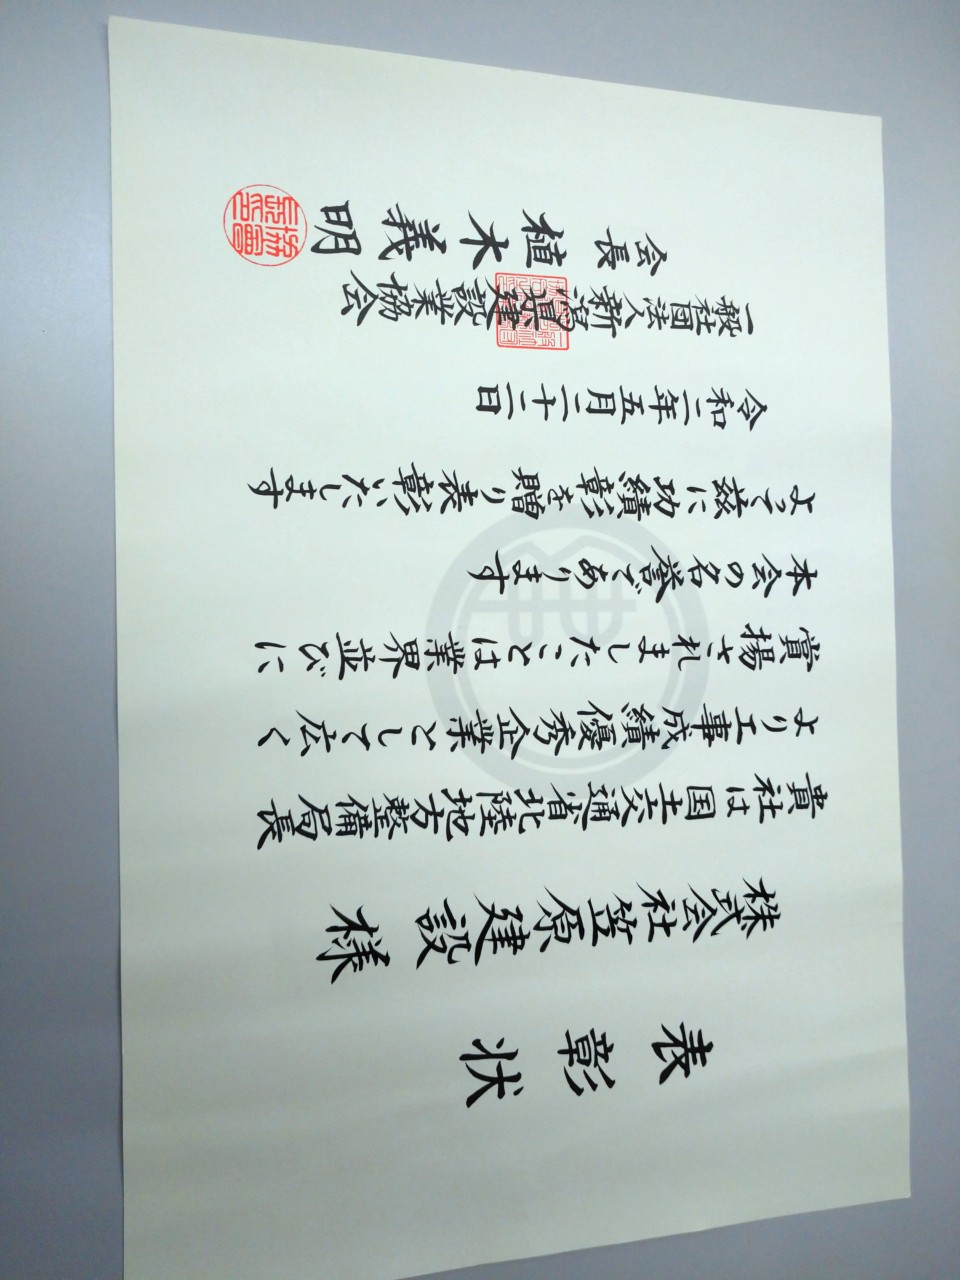 表彰状
株式会社笠原建設様
貴社は国土交通省北陸地方整備局長
より工事成績優秀企業として広く
賞揚されましたことは業界並びに
本会の名誉であります
よって茲に功績彰を贈り表彰いたします
令和二年五月二十二日
一般社団法人新潟県建設業協会
会長 植木義明